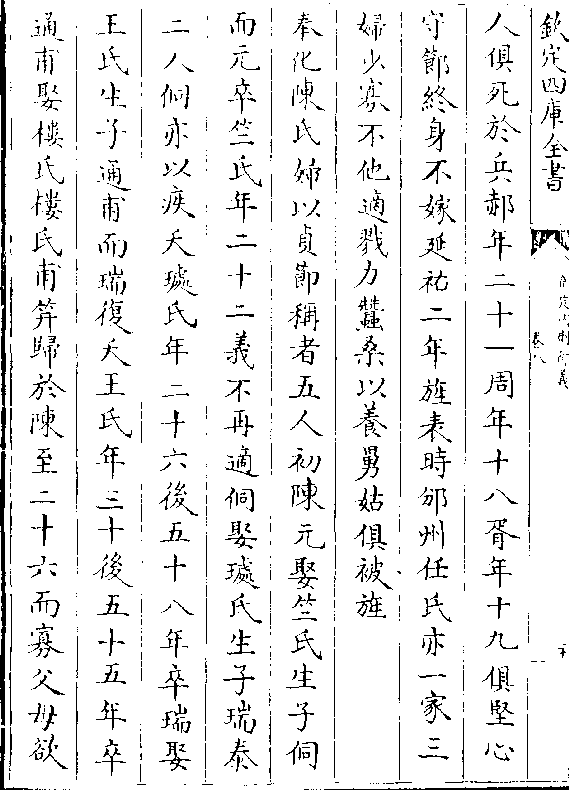 欽定四庫全書
卷八
人俱死於兵郝年二十一周年十八胥年十九俱堅心
守節終身不嫁延祐二年旌表時邠州任氏亦一家三
婦少寡不他適戮力蠶桑以養舅姑俱被旌
奉化陳氏婦以貞節稱者五人初陳元娶竺氏生子侗
而元卒竺氏年二十二義不再適侗娶璩氏生子瑞泰
二人侗亦以疾夭璩氏年二十六後五十八年卒瑞娶
王氏生子通甫而瑞復夭王氏年三十後五十五年卒
通甫娶樓氏樓氏甫笄歸於陳至二十六而寡父母欲